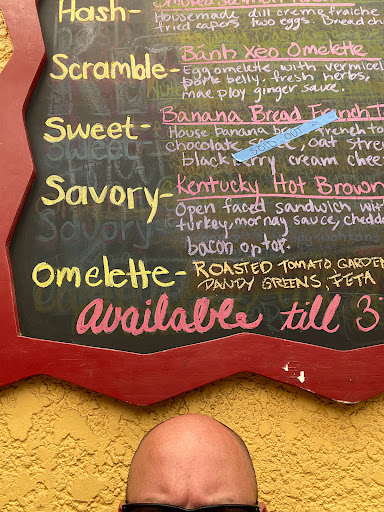 Hash- Smoked Salmon
Housemade dill creme fraiche
fried capers two eggs. Bread ch
Scramble- Bánh Xeo Omelette
Egg omelette with vermicel
pork belly. fresh herbs,
mae ploy ginger sauce.
Sweet- Banana Bread French T
House banana bread french to
chocolate oat stre
blackberry cream chee
SOLD OUT
Savory- Kentucky Hot Brown
Open faced sandwich with
turkey, mornay sauce, chedd
bacon on top.
Omelette- ROASTED TOMATO GARDE
DANDY GREENS, FETA
Available till 3